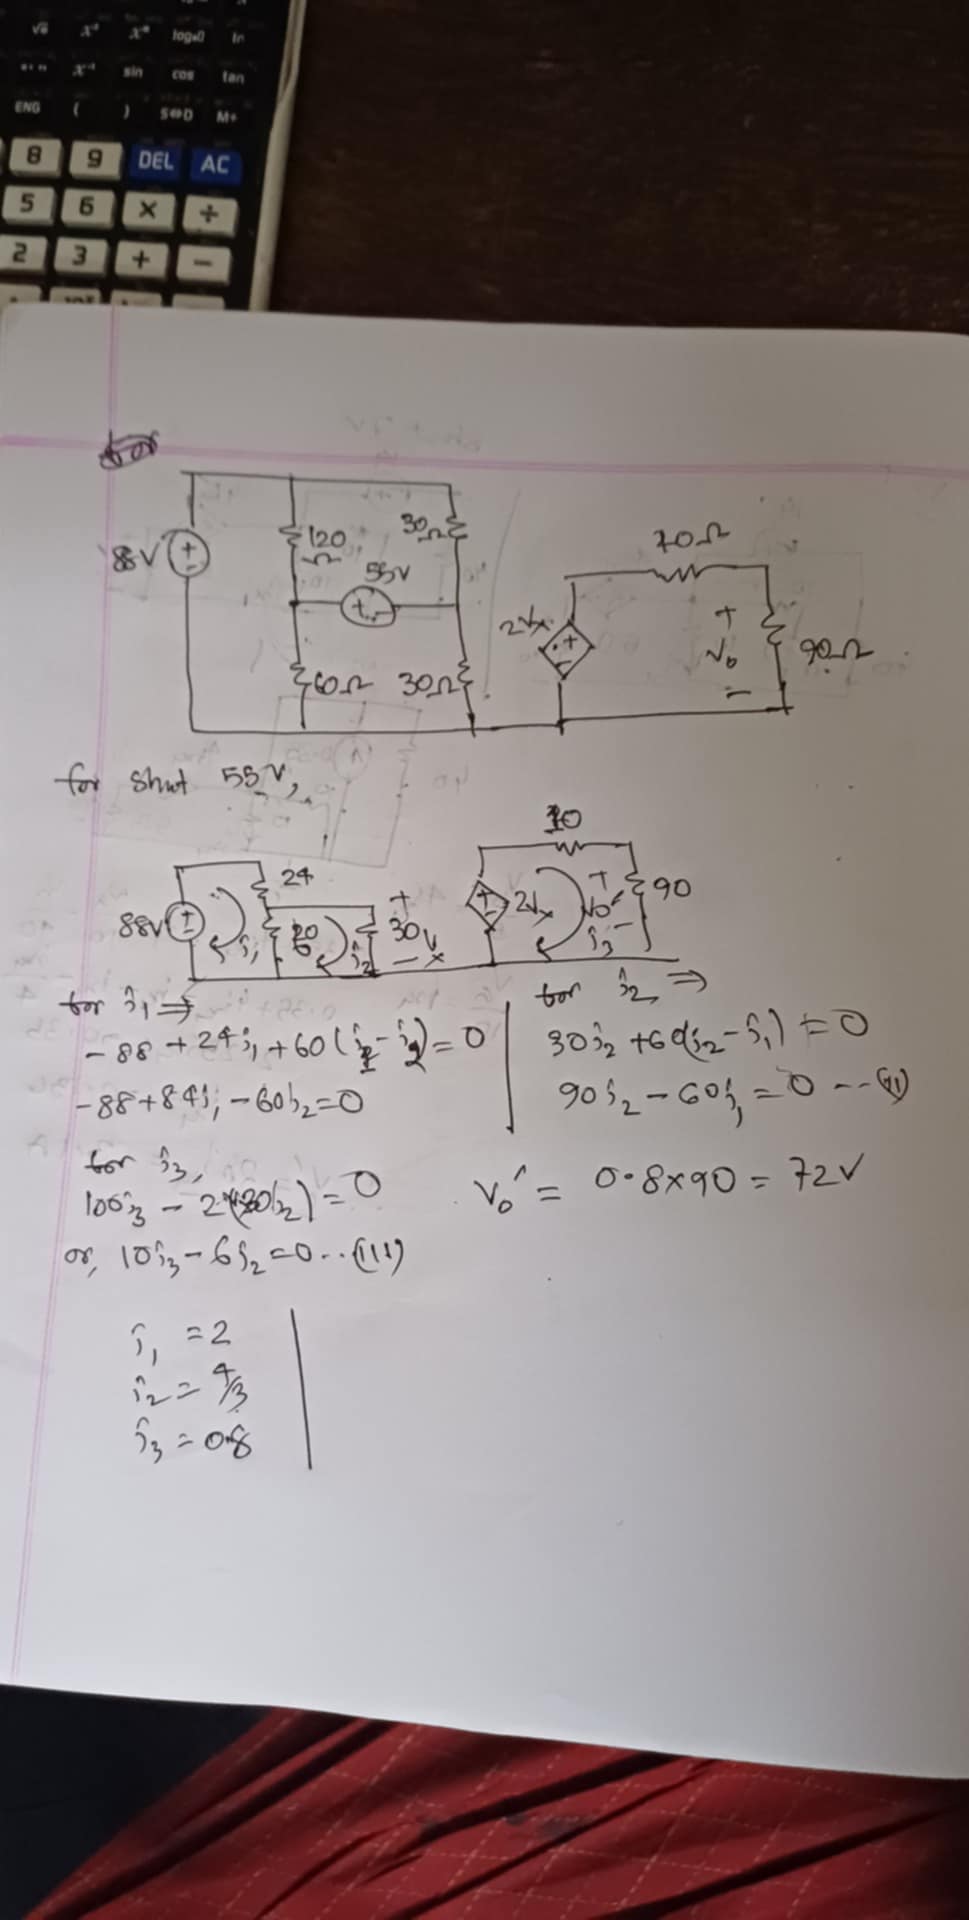 √a x² xⁿ log₁₀0 ln
x⁻¹ sin cos tan
ENG ( ) S⇔D M+
8 9 DEL AC
5 6 × ÷
2 3 + −
88V
120
Ω
30
Ω
55V
+ -
60Ω 30Ω
2Vx
70Ω
+
Vo
-
90Ω
for shut 55V,
88V
24
i₁
i₂
+
30 Vx
-
10
2Vx
+
Vo'
-
i₃
90
for i₁ ⇒
-88 + 24i₁ + 60(i₁ - i₂) = 0
-88 + 84i₁ - 60i₂ = 0
for i₂ ⇒
30i₂ + 60(i₂ - i₁) = 0
90i₂ - 60i₁ = 0 -- (11)
for i₃,
100i₃ - 2(30i₂) = 0
or, 10i₃ - 6i₂ = 0 .. (111)
Vo' = 0.8×90 = 72V
i₁ = 2
i₂ = 4/3
i₃ = 0.8